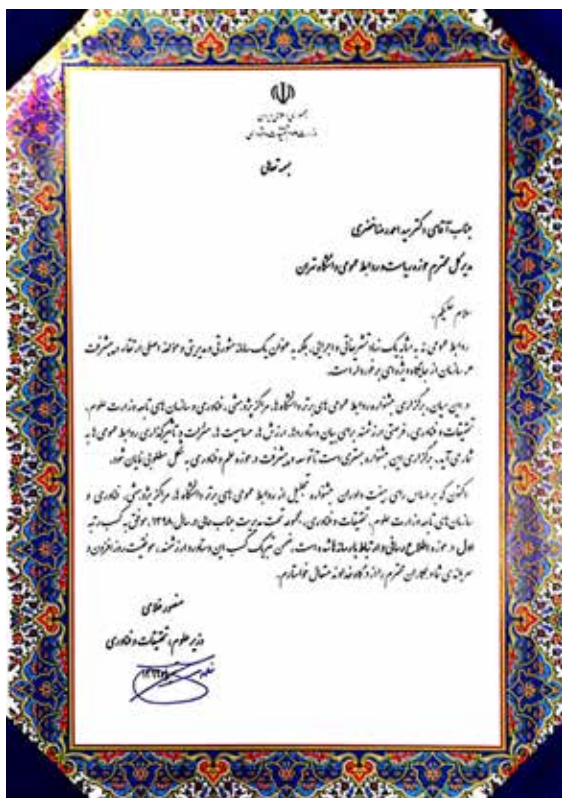 جمهوری اسلامی ایران
وزارت علوم، تحقیقات و فناوری
بسمه تعالی
جناب آقای دکتر سید احمدرضا خضری
مدیر کل محترم حوزه ریاست و روابط عمومی دانشگاه تهران
سلام علیکم،
روابط عمومی نه به مثابه یک نهاد تشریفاتی و اجرایی، بلکه به عنوان یک سامانه مشورتی و مدیریتی و مؤلفه اصلی ارتقاء و پیشرفت
هر سازمان از جایگاه ویژه‌ای برخوردار است.
در این میان، برگزاری جشنواره روابط عمومی های برتر دانشگاه‌ها، مراکز پژوهشی، فناوری و سازمان های تابعه وزارت علوم،
تحقیقات و فناوری، فرصتی ارزشمند برای بیان دستاوردها، ارزش ها، حساسیت ها، پیشرفت و تأثیرگذاری روابط عمومی ها به
شمار می آید. برگزاری این جشنواره بستری است تا توسعه و پیشرفت در حوزه علم و فناوری به شکل مطلوبی نمایان شود.
اکنون که بر اساس رای هیئت داوران جشنواره تجلیل از روابط عمومی های برتر دانشگاه ها، مراکز پژوهشی، فناوری و
سازمان های تابعه وزارت علوم، تحقیقات و فناوری، مجموعه تحت مدیریت جنابعالی در سال ۱۳۹۸، موفق به کسب رتبه
اول در حوزه اطلاع رسانی و ارتباط با رسانه ها شده است، ضمن تبریک کسب این دستاورد ارزشمند، موفقیت روزافزون و
سربلندی شما و همکاران محترم را از درگاه خداوند متعال خواستارم.
منصور غلامی
وزیر علوم، تحقیقات و فناوری